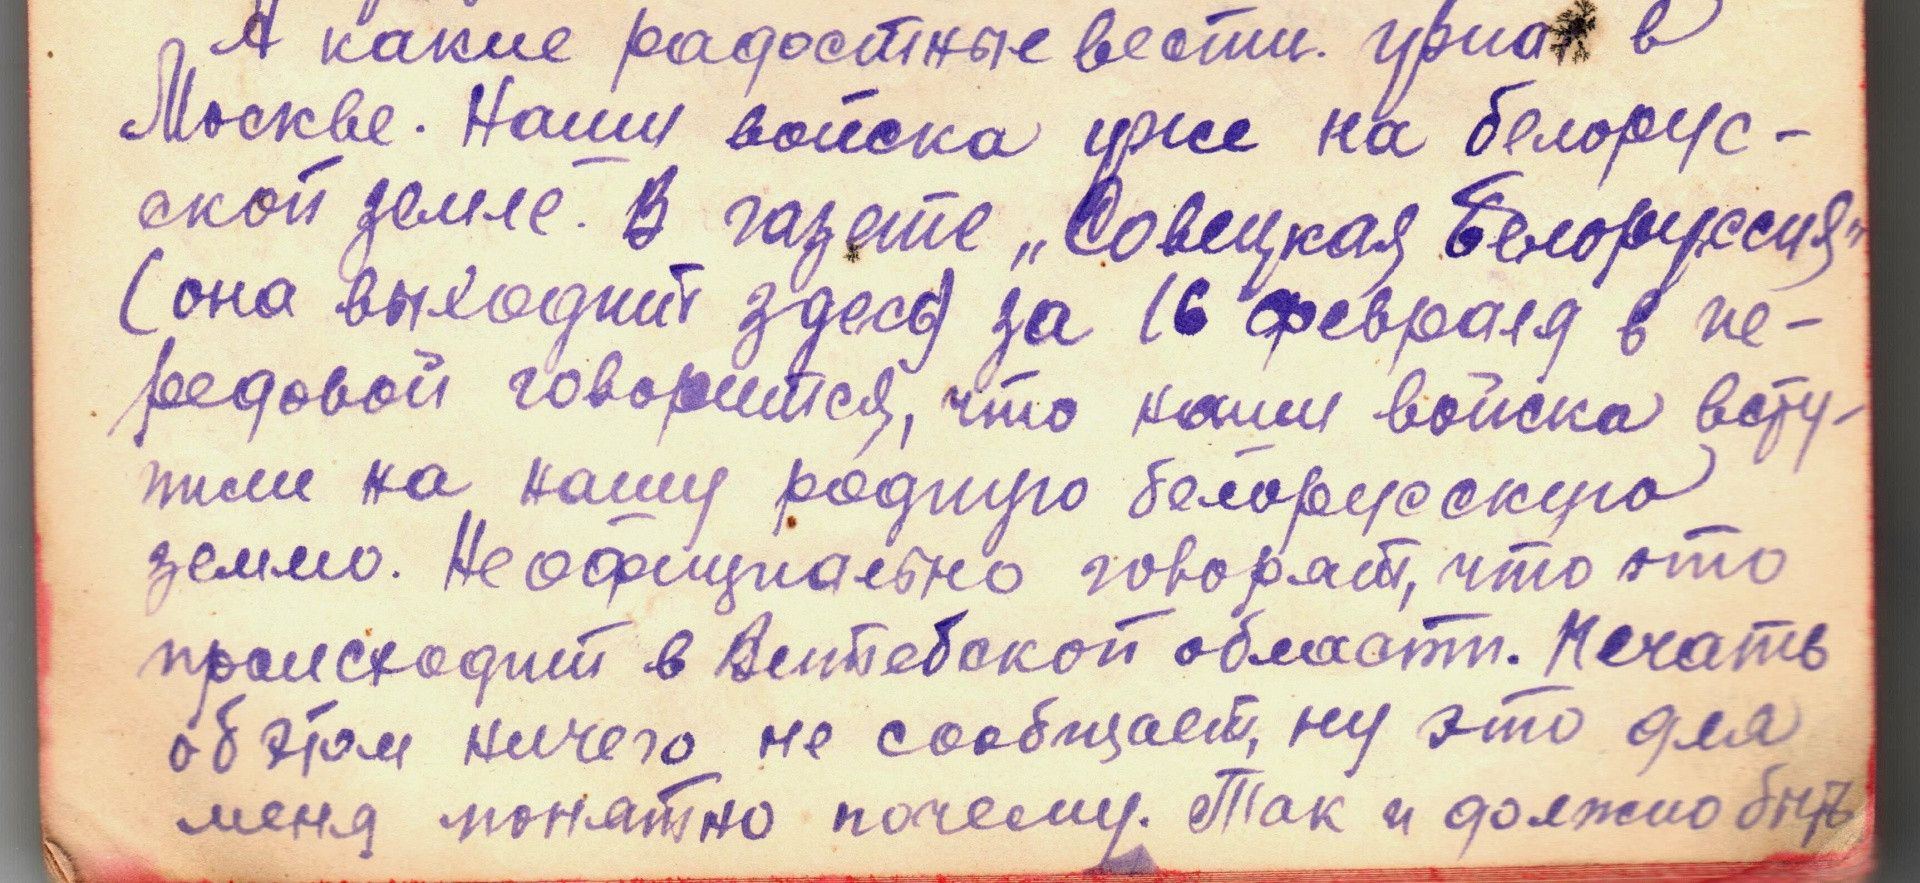 А какие радостные вести. Узнал в
Москве. Наши войска уже на белорус-
ской земле. В газете „Совецкая Белоруссия"
(она выходит здесь) за 16 февраля в пе-
редовой говорится, что наши войска всту-
пили на нашу родную белорусскую
землю. Неофициально говорят, что это
происходит в Витебской области. Печать
об этом ничего не сообщает, ну это для
меня понятно почему. Так и должно быть